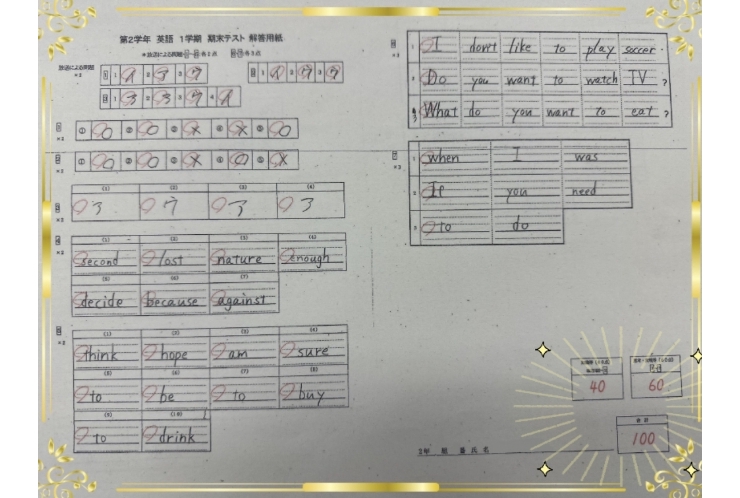 第2学年 英語 1学期 期末テスト 解答用紙
1 2 3
1 2 3
1 3 2 3 3 4
① ○ ② ○ ③ × ④ × ⑤ ○
① ○ ② ○ ③ × ④ ○ ⑤ ×
(1) (2) (3) (4)
ろ う ろ ろ
(1) (2) (3) (4)
second lost nature enough
(5) (6) (7)
decide because against
(1) (2) (3) (4)
think hope am sure
(5) (6) (7) (8)
to be to buy
(9) (10)
to drink
1 I don't like to play soccer.
2 Do you want to watch TV ?
3 What do you want to eat ?
1 when I was
2 If you need
3 to do
40 60
合計
100
2年 組 番 氏名